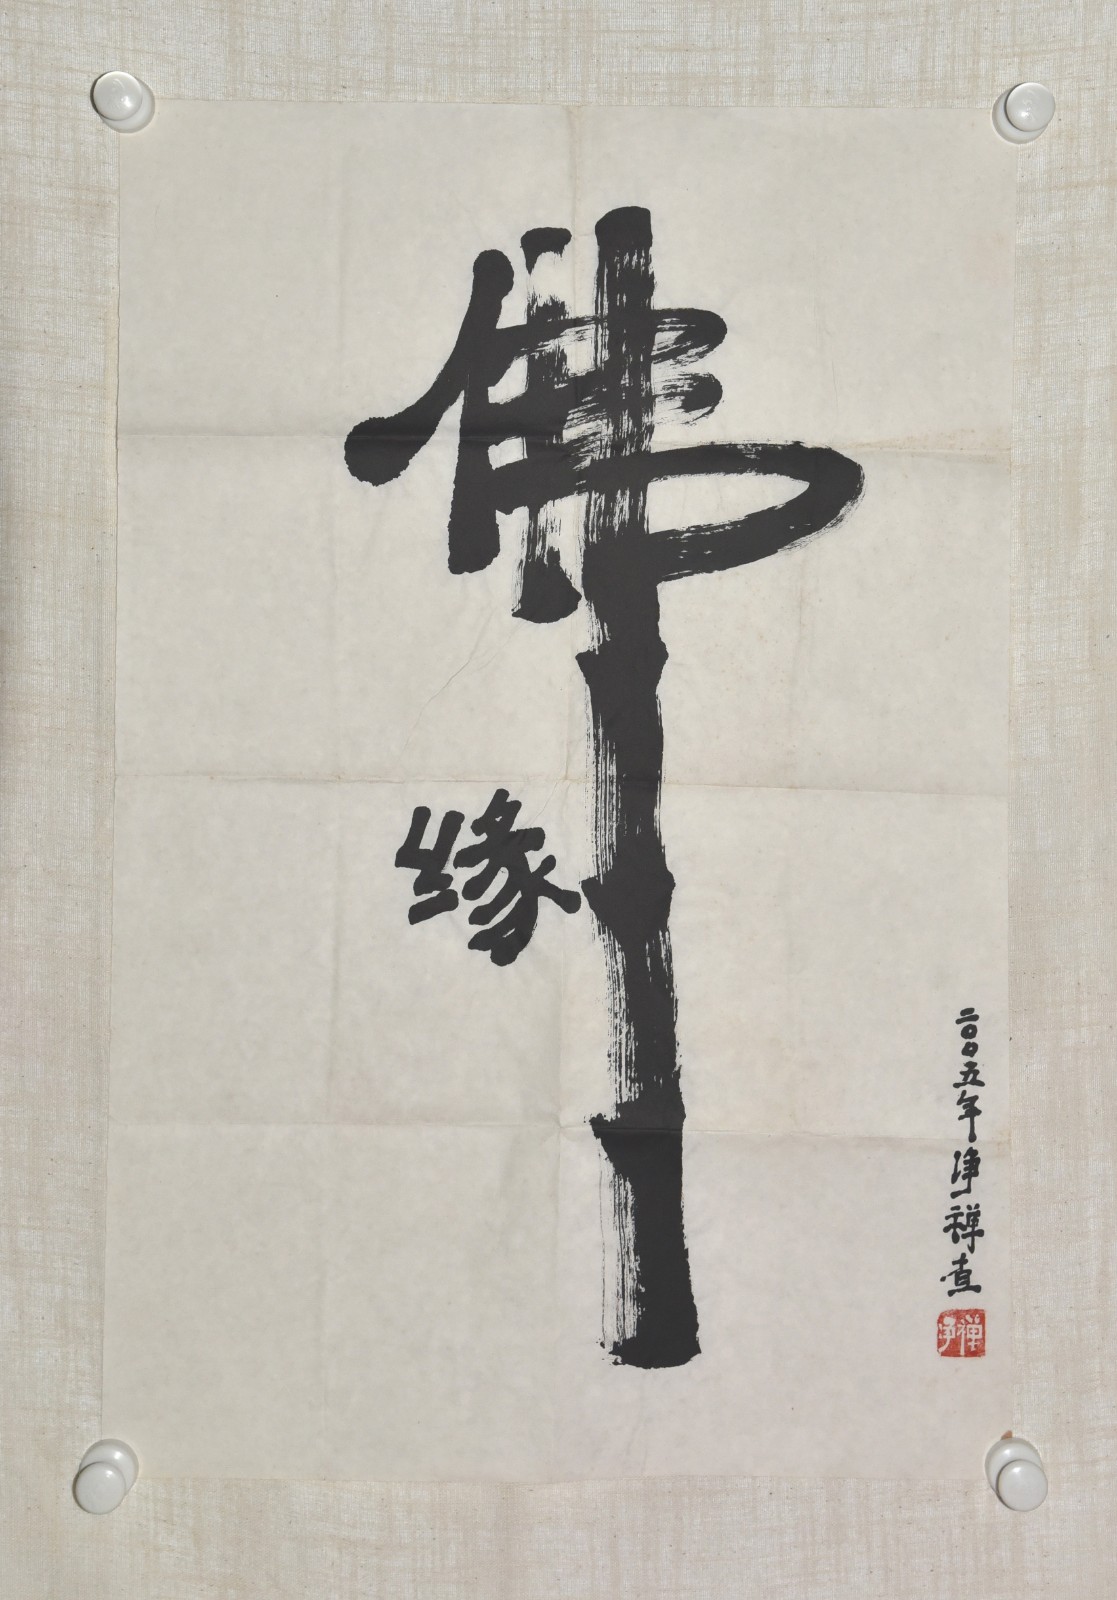 佛
缘
二〇〇五年净禅
净禅